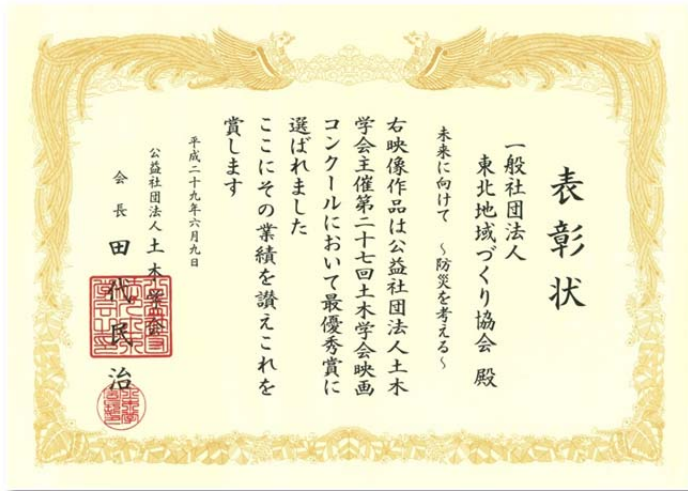 表彰状
一般社団法人
東北地域づくり協会 殿
未来に向けて ~防災を考える~
右映像作品は公益社団法人土木
学会主催第二十七回土木学会映画
コンクールにおいて最優秀賞に
選ばれました
ここにその業績を讃えこれを
賞します
平成二十九年六月九日
公益社団法人 土木学会
会長 田代民治